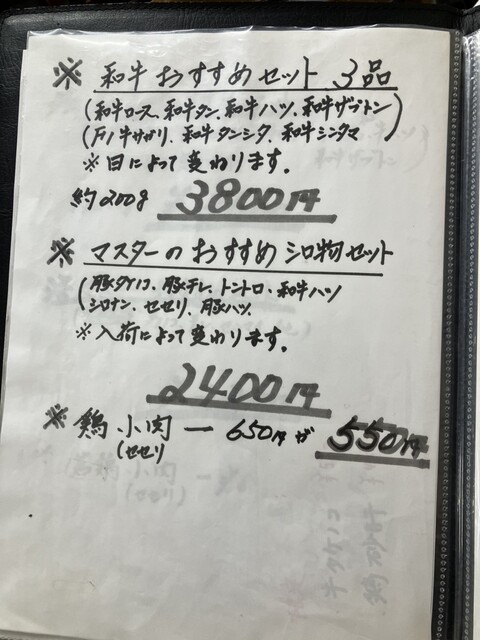 ※ 和牛おすすめセット 3品
(和牛ロース、和牛タン、和牛ハツ、和牛ザブトン)
(万ノ牛サガリ、和牛タンシタ、和牛シンタマ
※日によって変わります。
約200g 3800円
※ マスターのおすすめシロ物セット
(豚タケノコ、豚テレ、トントロ、和牛ハツ
シロナン、セセリ、豚ハツ、
※入荷によって変わります。
2400円
※ 鶏小肉 ー 650円が 550円
(セセリ